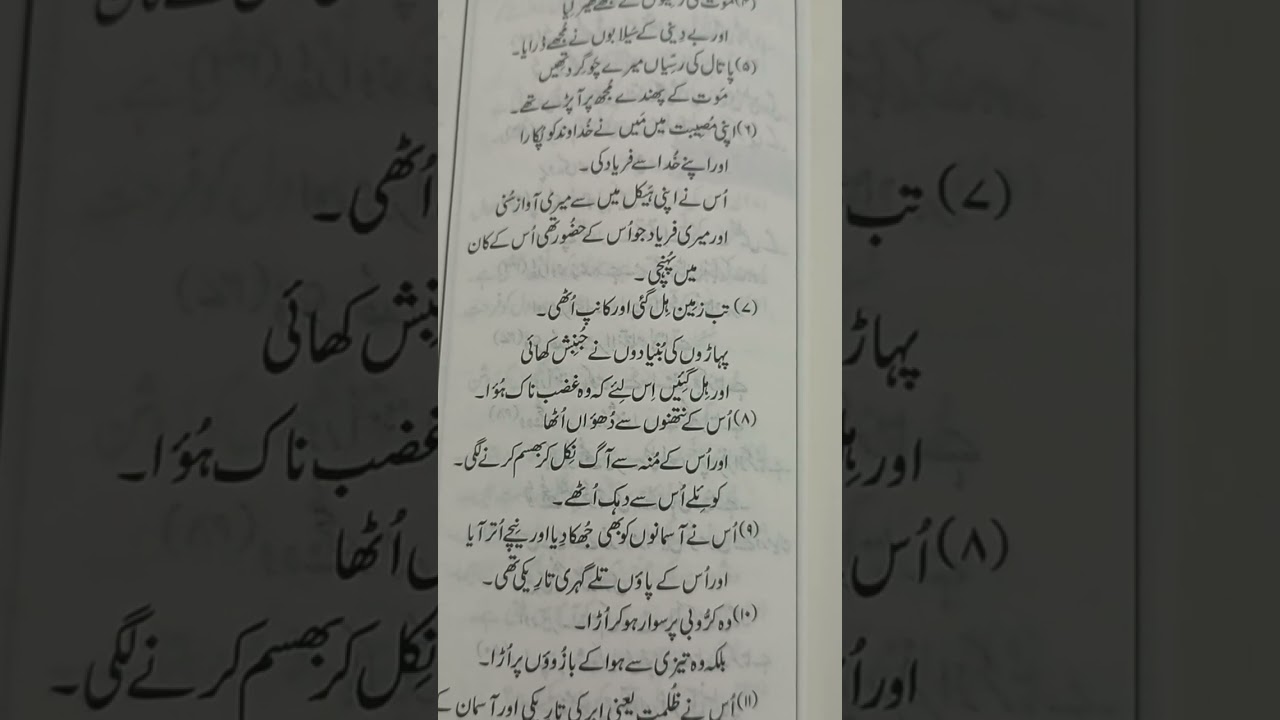 (۴) موت کی رسیوں نے مجھے گھیر لیا
اور بے دِینی کے سَیلابوں نے مُجھے ڈرایا۔
(۵) پاتال کی رسّیاں میرے چَوگِرد تھِیں
مَوت کے پھندے مُجھ پر آ پڑے تھے۔
(۶) اپنی مُصِیبت میں مَیں نے خُداوند کو پُکارا
اور اپنے خُدا سے فریاد کی۔
اُس نے اپنی ہَیکل میں سے میری آواز سُنی
اور میری فریاد جو اُس کے حضُور تھی اُس کے کان
میں پُہنچی۔
(۷) تب زمِین ہِل گئی اور کانپ اُٹھی۔
پہاڑوں کی بُنیادوں نے جُنبِش کھائی
اور ہِل گئِیں اِس لِئے کہ وہ غضب ناک ہُؤا۔
(۸) اُس کے نتھنوں سے دُھؤاں اُٹھا
اور اُس کے مُنہ سے آگ نِکل کر بھسم کرنے لگی۔
کوئِلے اُس سے دہک اُٹھے۔
(۹) اُس نے آسمانوں کو بھی جُھکا دِیا اور نِیچے اُتر آیا
اور اُس کے پاؤں تلے گہری تارِیکی تھی۔
(۱۰) وہ کرُّوبی پر سوار ہو کر اُڑا۔
بلکہ وہ تیزی سے ہوا کے بازُوؤں پر اُڑا۔
(۱۱) اُس نے ظُلمت یعنی ابر کی تارِیکی اور آسمان کے
(۷) تب
اُٹھی۔
پہاڑ
جُنبِش کھائی
اور ہِل
غضب ناک ہُؤا۔
(۸) اُس
اُٹھا
اور اُ
نِکل کر بھسم کرنے لگی۔